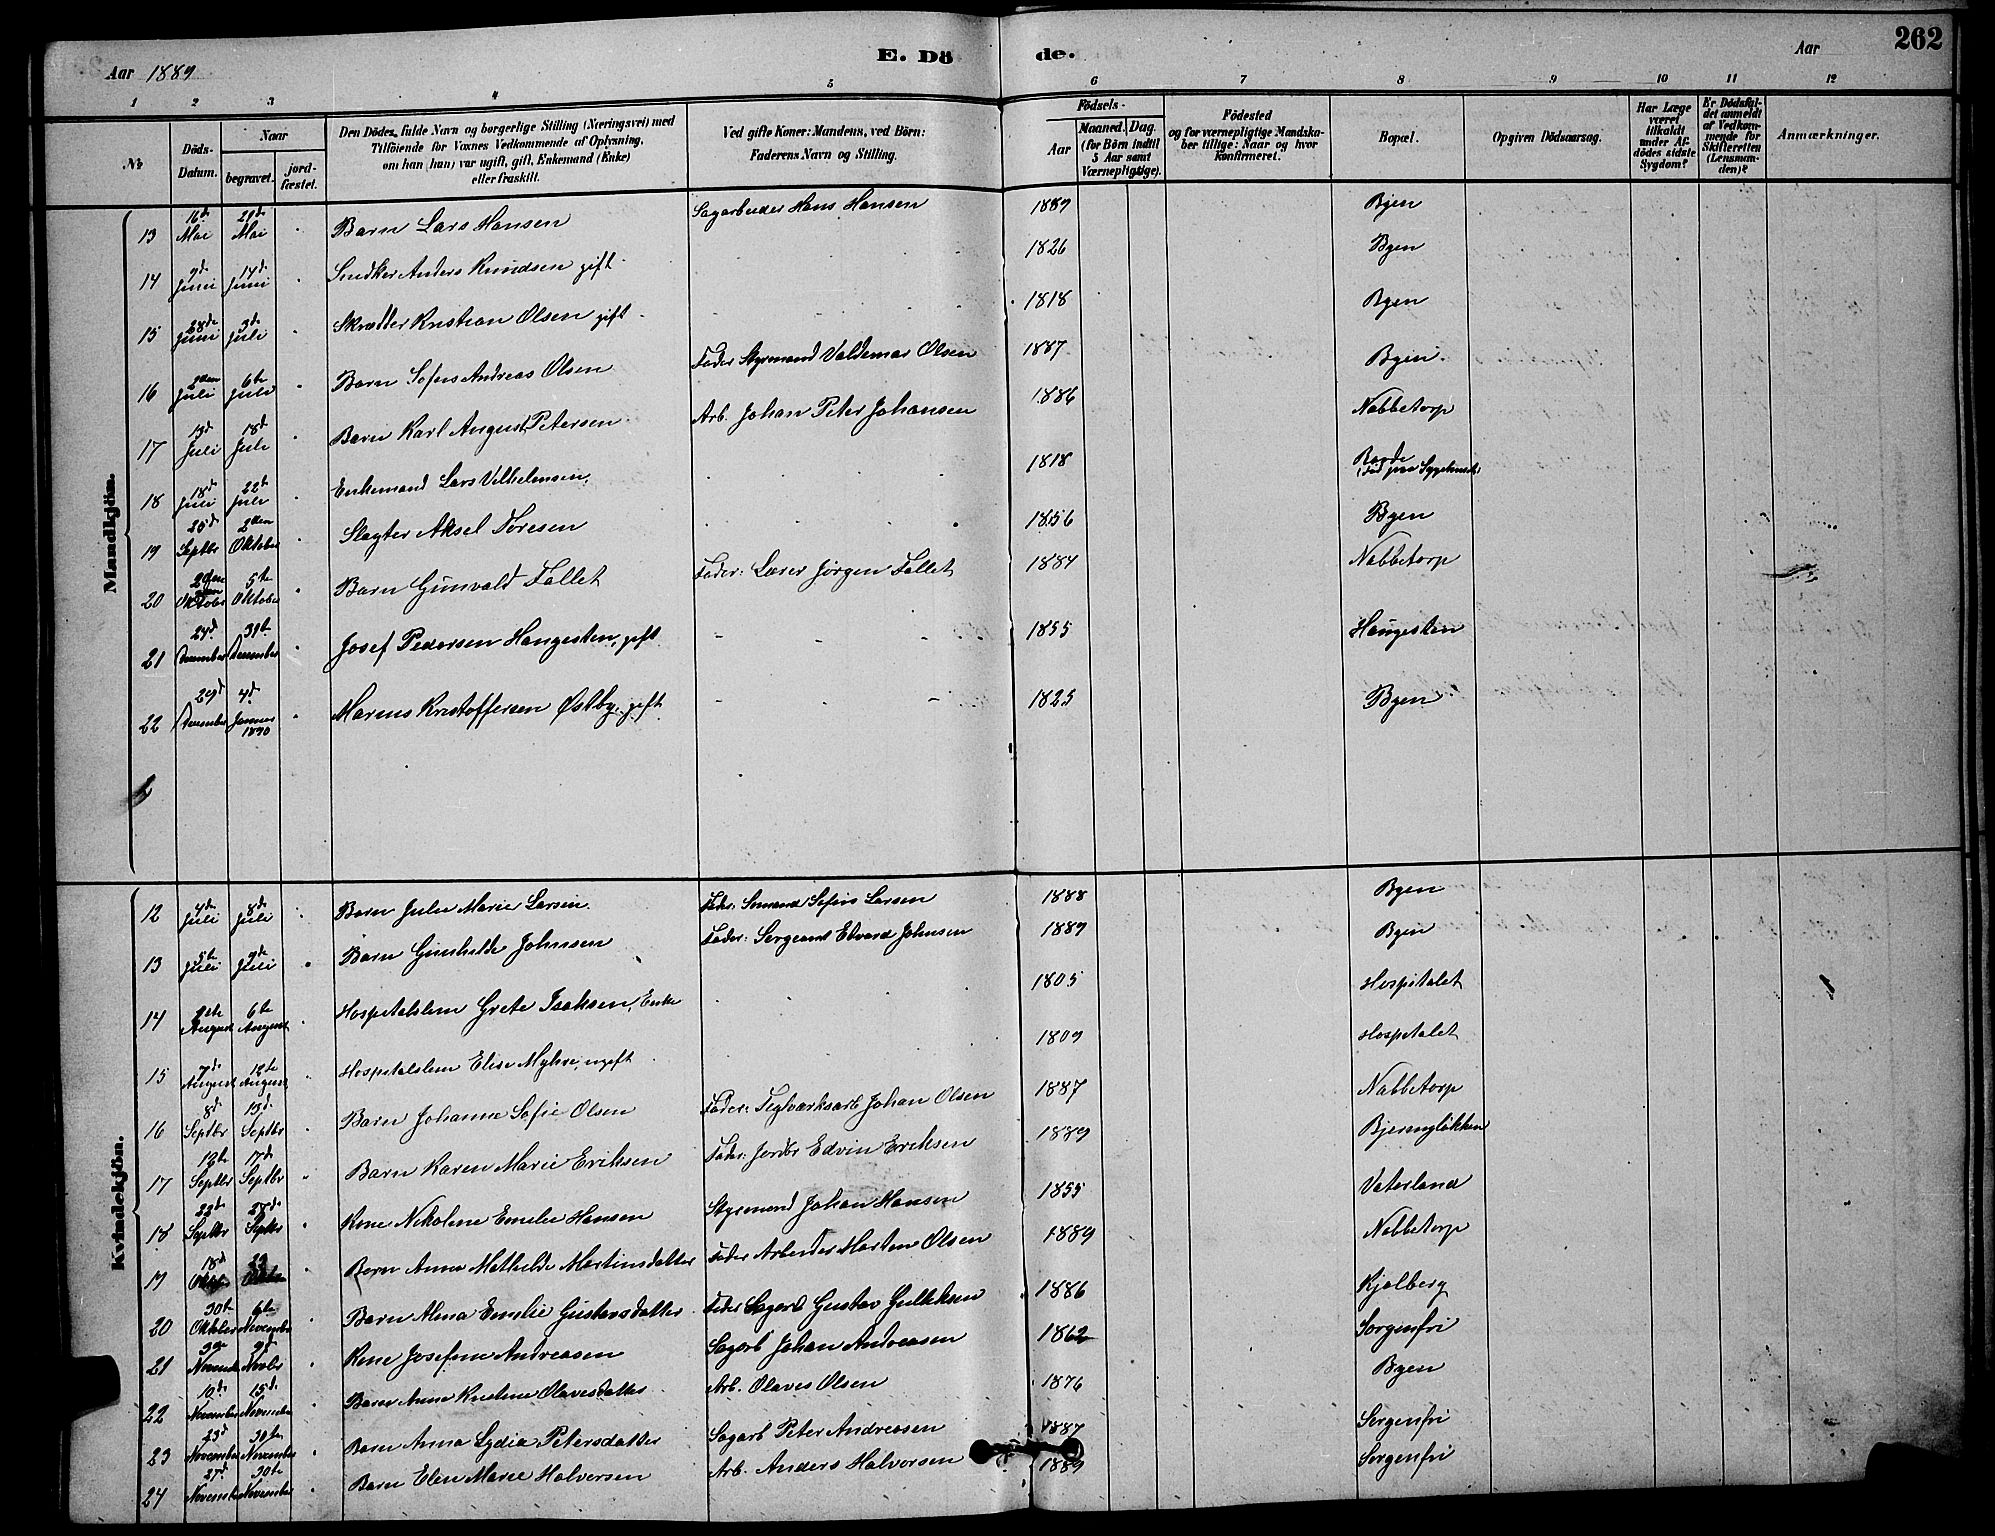 E. Dö de.
262
Aar 1889
Aar
1 2 3 4 5 6 7 8 9 10 11 12
№
Döds-Datum.
Naar
begravet.
jord-fæstet.
Den Dödes fulde Navn og borgerlige Stilling (Næringsvei) med
Tilföiende for Voxnes Vedkommende af Oplysning,
om han (hun) var ugift, gift, Enkemand (Enke)
eller fraskilt.
Ved gifte Koner: Mandens, ved Börn:
Faderens Navn og Stilling.
Födsels-
Aar
Maaned. Dag.
(for Börn indtil
5 Aar samt
Værnepligtige).
Födested
og for værnepligtige Mandska-
ber tillige: Naar og hvor
Konfirmeret.
Bopæl.
Opgiven Dödsaarsag.
Har Læge
været
tilkaldt
under Af-
dödes sidste
Sygdom?
Er Dödsfal-
det anmeldt
af Vedkom-
mende for
Skifteretten
(Lensman-
den)?
Anmærkninger.
Mandkjön.
13 16de Mai 29de Mai Barn Lars Hansen Sagarbeider Hans Hansen 1889 Byen
14 9d Juni 14d Juni Snedker Anders Knudsen gift 1826 Byen
15 28de Juni 3de Juli Skrædder Kristian Olsen gift 1818 Byen
16 2den Juli 6te Juli Barn Sofus Andreas Olsen Fader Styrmand Valdemar Olsen 1887 Byen
17 13d Juli 18d Juli Barn Karl August Petersen Arb. Johan Peter Johansen 1886 Nabbetorp
18 18d Juli 22d Juli Enkemand Lars Vilhelmsen 1818
19 25d Septbr 2den Oktober Slagter Aksel Toresen 1856 Byen
20 Oktober 5te Oktober Barn Gunvald Fallet Fader: Lærer Jørgen Fallet 1884 Nabbetorp
21 24d December 31te December Josef Pedersen Haugesten, gift 1855 Haugesten
22 29d December 4d Januar 1890 Marens Kristoffersen Østby, gift 1825 Byen
Kvindekjön.
12 4de Juli 8de Juli Barn Julie Marie Larsen Fader: Sømand Sofus Larsen 1888 Byen
13 5te Juli 9de Juli Barn Gunhilde Johnsen Fader: Sergeant Edvard Johnsen 1889 Byen
14 August 6te August Hospitalslem Grete Isaksen, Enke 1805 Hospitalet
15 7d August 12te August Hospitalslem Elise Myhre, ugift 1809 Hospitalet
16 8d Septbr 13d Septbr Barn Johanne Sofie Olsen Fader: Teglværksarb Johan Olsen 1887 Nabbetorp
17 12te Septbr 17d Septbr Barn Karen Marie Eriksen Fader: Jordbr Edvin Eriksen 1889 Bjerringløkken
18 22de Septbr 27de Septbr Kone Nikoline Emelie Hansen Styrmand Johan Hansen 1855 Vaterland
19 18d Oktbr 23 Barn Anna Mathilde Martinsdatter Fader Arbeider Martin Olsen 1889 Nabbetorp
20 30te Oktober 6te November Barn Alma Emilie Gustavsdatter Fader Sagarb Gustav Gulliksen 1886 Kjølberg
21 Novbr Kone Josefine Andreasen Sagarb Johan Andreasen 1862 Sorgenfri
22 10de November 15d November Barn Anna Kristine Olavesdatter Arb. Olaves Olsen 1876 Byen
23 23d November 30te November Barn Anna Lydia Petersdatter Sagarb Peter Andreasen 1887 Sorgenfri
24 27d November 30te November Barn Elen Marie Halvorsen Arb. Anders Halvorsen 1889 Sorgenfri